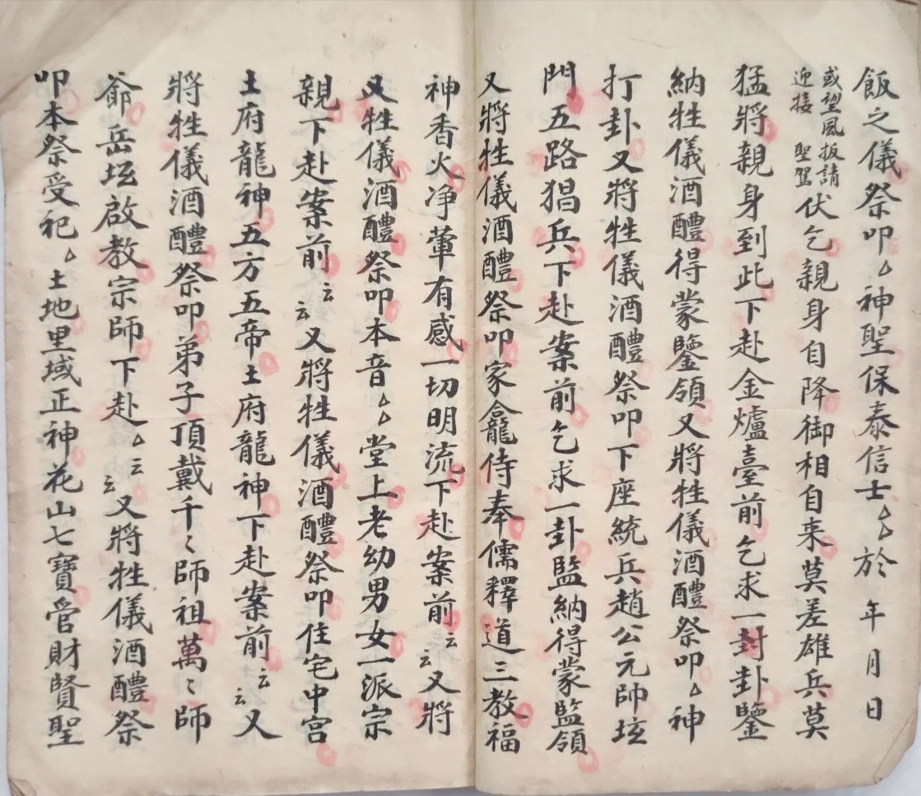 飯之儀祭叩厶神聖保泰信士厶厶於 年 月 日
或望風扳請迎接 聖駕伏乞親身自降御相自来莫差雄兵莫
猛將親身到此下赴金爐臺前乞求一封卦鑒
納牲儀酒醴得蒙鑒領又將牲儀酒醴祭叩厶神
打卦又將牲儀酒醴祭叩下座統兵趙公元帥垓
門五路猖兵下赴案前乞求一卦監納得蒙監領
又將牲儀酒醴祭叩家龕侍奉儒釋道三教福
神香火净葷有感一切明流下赴案前云云又將
又牲儀酒醴祭叩本音厶厶堂上老幼男女一派宗
親下赴案前云云又將牲儀酒醴祭叩住宅中宫
土府龍神五方五帝土府龍神下赴案前云云又
將牲儀酒醴祭叩弟子頂戴千〻師祖萬〻師
爺岳垓啟教宗師下赴厶云云又將牲儀酒醴祭
叩本祭受祀厶土地里域正神花山七寶管財賢聖